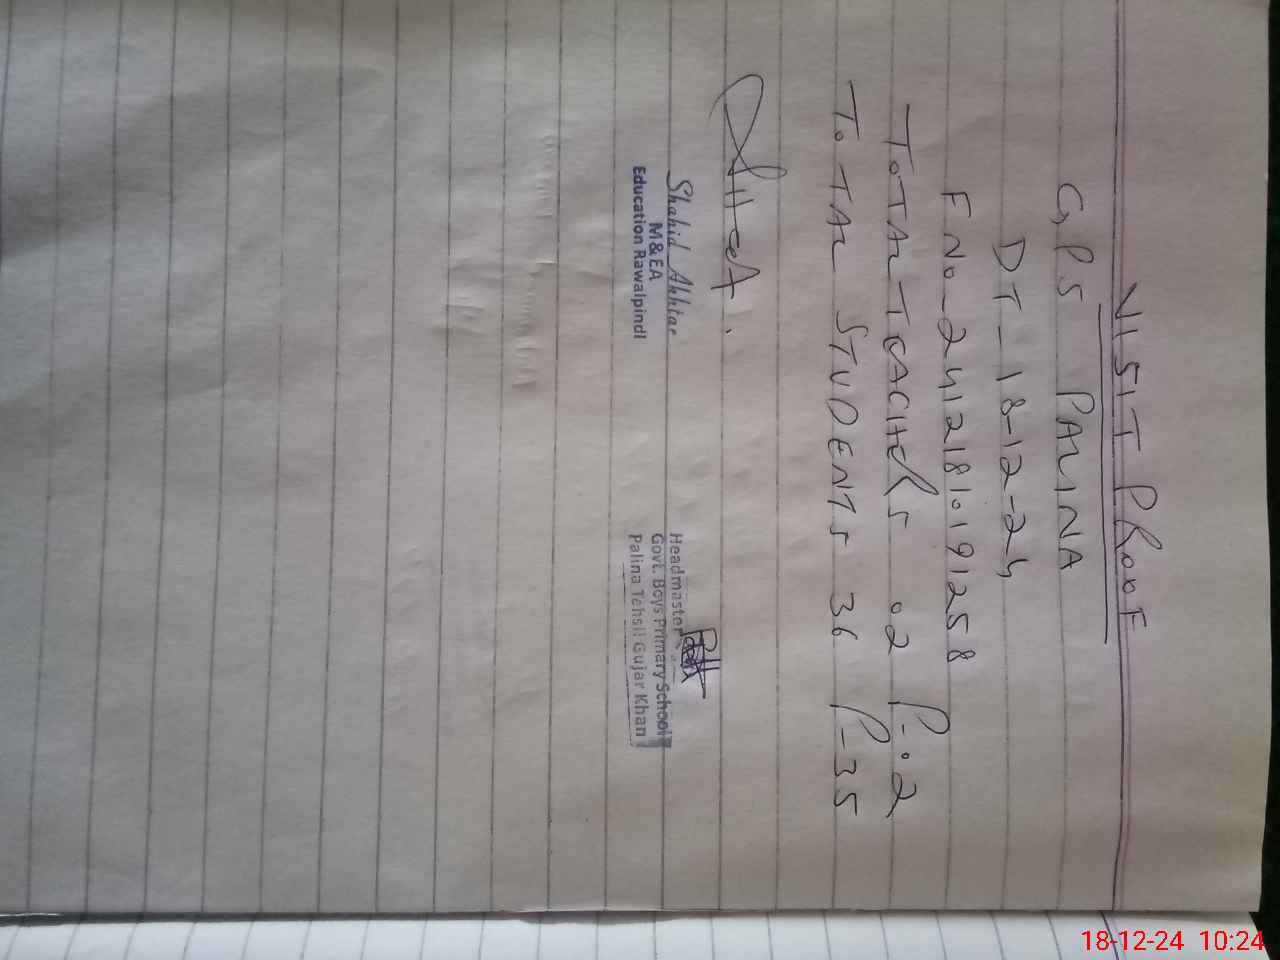 VISIT PROOF
GPS PALINA
DT-18-12-24
F No-24121810191258
TOTAL TEACHERS 02 P-02
TOTAL STUDENTS 36 P-35
Shahid Akhtar
M & EA
Education Rawalpindi
Headmaster
Govt. Boys Primary School
Palina Tehsil Gujar Khan
18-12-24 10:24